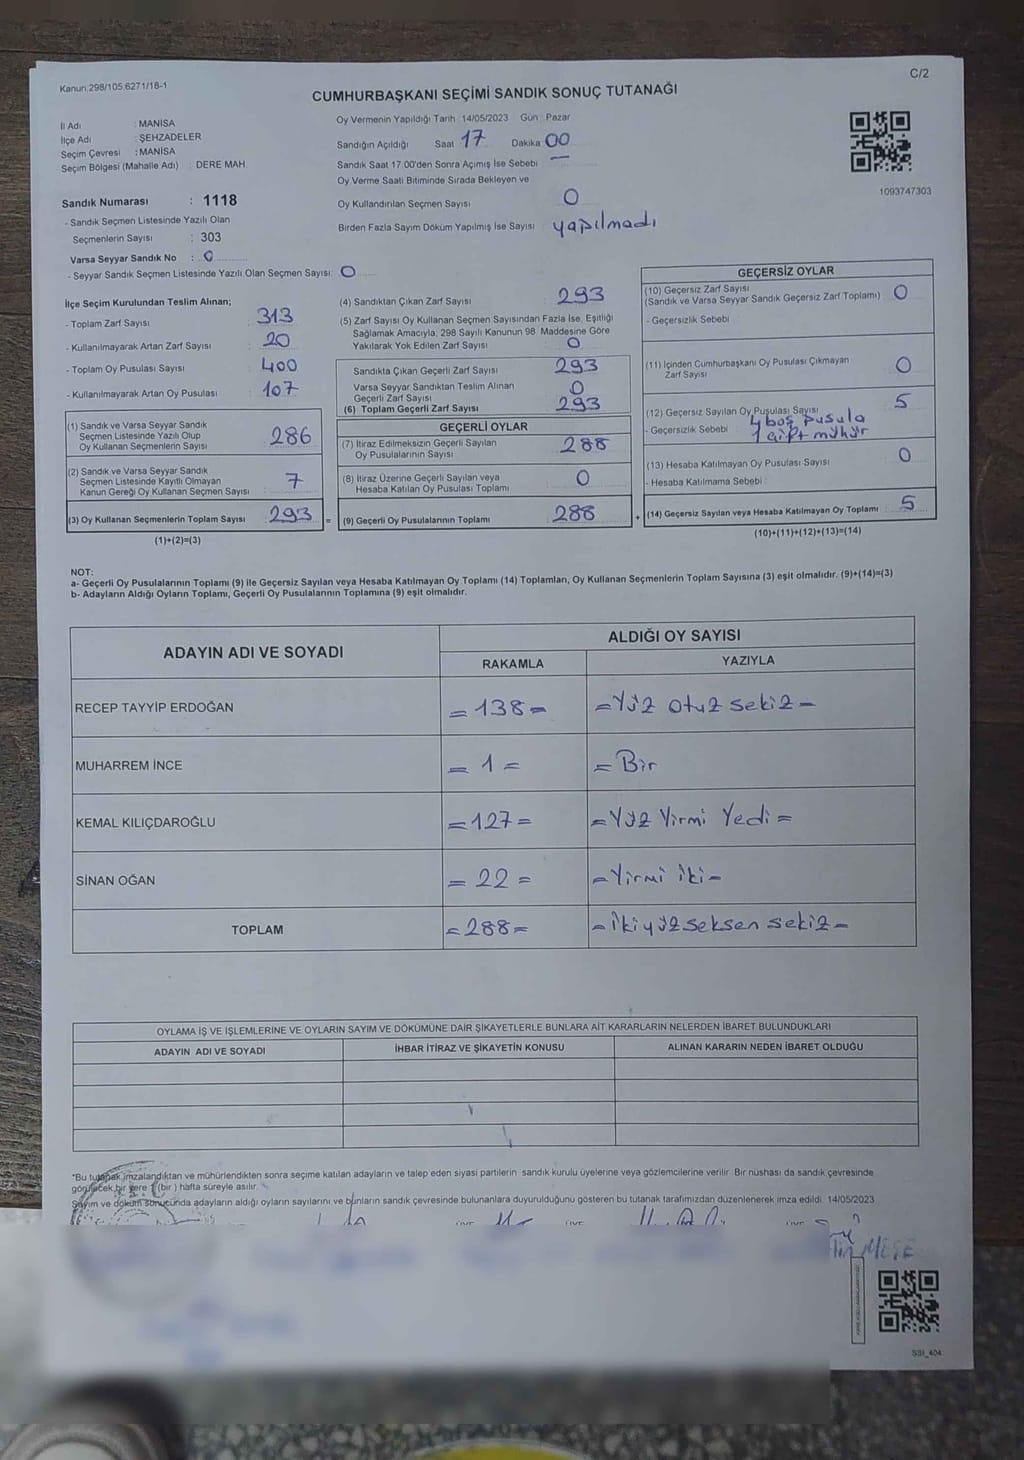 Kanun:298/105,6271/18-1
C/2
CUMHURBAŞKANI SEÇİMİ SANDIK SONUÇ TUTANAĞI
İl Adı : MANİSA
İlçe Adı : ŞEHZADELER
Seçim Çevresi : MANİSA
Seçim Bölgesi (Mahalle Adı) : DERE MAH.
Sandık Numarası : 1118
- Sandık Seçmen Listesinde Yazılı Olan
Seçmenlerin Sayısı : 303
Varsa Seyyar Sandık No : 0
- Seyyar Sandık Seçmen Listesinde Yazılı Olan Seçmen Sayısı: 0
Oy Vermenin Yapıldığı Tarih : 14/05/2023 Gün : Pazar
Sandığın Açıldığı Saat 17 Dakika 00
Sandık Saat 17.00'den Sonra Açımış İse Sebebi —
Oy Verme Saati Bitiminde Sırada Bekleyen ve
Oy Kullandırılan Seçmen Sayısı 0
Birden Fazla Sayım Döküm Yapılmış İse Sayısı yapılmadı
1093747303
İlçe Seçim Kurulundan Teslim Alınan;
- Toplam Zarf Sayısı 313
- Kullanılmayarak Artan Zarf Sayısı 20
- Toplam Oy Pusulası Sayısı 400
- Kullanılmayarak Artan Oy Pusulası 107
(1) Sandık ve Varsa Seyyar Sandık
Seçmen Listesinde Yazılı Olup
Oy Kullanan Seçmenlerin Sayısı 286
(2) Sandık ve Varsa Seyyar Sandık
Seçmen Listesinde Kayıtlı Olmayan
Kanun Gereği Oy Kullanan Seçmen Sayısı 7
(3) Oy Kullanan Seçmenlerin Toplam Sayısı 293 =
(1)+(2)=(3)
(4) Sandıktan Çıkan Zarf Sayısı 293
(5) Zarf Sayısı Oy Kullanan Seçmen Sayısından Fazla İse, Eşitliği
Sağlamak Amacıyla, 298 Sayılı Kanunun 98. Maddesine Göre
Yakılarak Yok Edilen Zarf Sayısı 0
Sandıkta Çıkan Geçerli Zarf Sayısı 293
Varsa Seyyar Sandıktan Teslim Alınan
Geçerli Zarf Sayısı 0
(6) Toplam Geçerli Zarf Sayısı 293
GEÇERLİ OYLAR
(7) İtiraz Edilmeksizin Geçerli Sayılan
Oy Pusulalarının Sayısı 288
(8) İtiraz Üzerine Geçerli Sayılan veya
Hesaba Katılan Oy Pusulası Toplamı 0
(9) Geçerli Oy Pusulalarının Toplamı 288 +
GEÇERSİZ OYLAR
(10) Geçersiz Zarf Sayısı
(Sandık ve Varsa Seyyar Sandık Geçersiz Zarf Toplamı) 0
- Geçersizlik Sebebi
(11) İçinden Cumhurbaşkanı Oy Pusulası Çıkmayan
Zarf Sayısı 0
(12) Geçersiz Sayılan Oy Pusulası Sayısı 5
- Geçersizlik Sebebi 4 boş pusula
1 çift mühür
(13) Hesaba Katılmayan Oy Pusulası Sayısı 0
- Hesaba Katılmama Sebebi
(14) Geçersiz Sayılan veya Hesaba Katılmayan Oy Toplamı 5
(10)+(11)+(12)+(13)=(14)
NOT:
a- Geçerli Oy Pusulalarının Toplamı (9) ile Geçersiz Sayılan veya Hesaba Katılmayan Oy Toplamı (14) Toplamları, Oy Kullanan Seçmenlerin Toplam Sayısına (3) eşit olmalıdır. (9)+(14)=(3)
b- Adayların Aldığı Oyların Toplamı, Geçerli Oy Pusulalarının Toplamına (9) eşit olmalıdır.
ADAYIN ADI VE SOYADI
ALDIĞI OY SAYISI
RAKAMLA YAZIYLA
RECEP TAYYİP ERDOĞAN = 138 = = Yüz otuz sekiz =
MUHARREM İNCE = 1 = = Bir
KEMAL KILIÇDAROĞLU = 127 = = Yüz Yirmi Yedi =
SİNAN OĞAN = 22 = = Yirmi iki =
TOPLAM = 288 = = İkiyüzseksen sekiz =
OYLAMA İŞ VE İŞLEMLERİNE VE OYLARIN SAYIM VE DÖKÜMÜNE DAİR ŞİKAYETLERLE BUNLARA AİT KARARLARIN NELERDEN İBARET BULUNDUKLARI
ADAYIN ADI VE SOYADI İHBAR İTİRAZ VE ŞİKAYETİN KONUSU ALINAN KARARIN NEDEN İBARET OLDUĞU
*Bu tutanak imzalandıktan ve mühürlendikten sonra seçime katılan adayların ve talep eden siyasi partilerin sandık kurulu üyelerine veya gözlemcilerine verilir. Bir nüshası da sandık çevresinde
görülecek bir yere 1 (bir) hafta süreyle asılır.
Sayım ve döküm sonucunda adayların aldığı oyların sayılarını ve bunların sandık çevresinde bulunanlara duyurulduğunu gösteren bu tutanak tarafımızdan düzenlenerek imza edildi. 14/05/2023
MEŞE
SSI_404